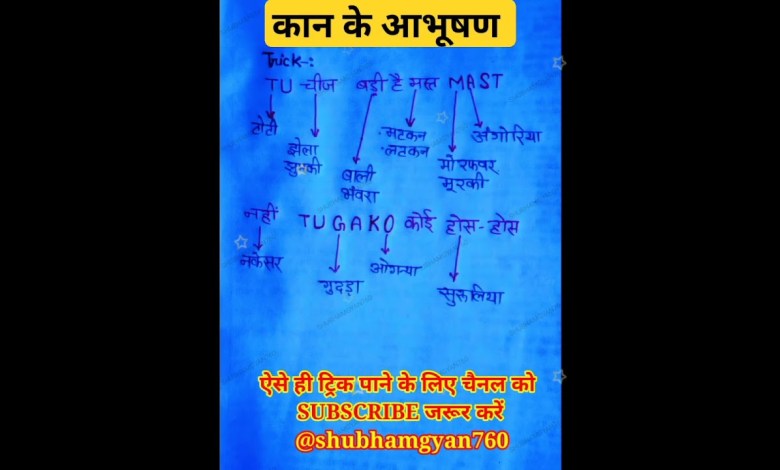 कान के आभूषण
Trick-:
TU चीज बड़ी है मस्त MAST
टोटी
झेला
झुमकी
बाली
भंवरा
मटकन
लटकन
मोरफवर
मूरकी
अंगोरिया
नहीं TUGAKO कोई होस-होस
नकेसर
गुदड़ा
ओगन्या
सुरलिया
ऐसे ही ट्रिक पाने के लिए चैनल को
SUBSCRIBE जरूर करें
@shubhamgyan760